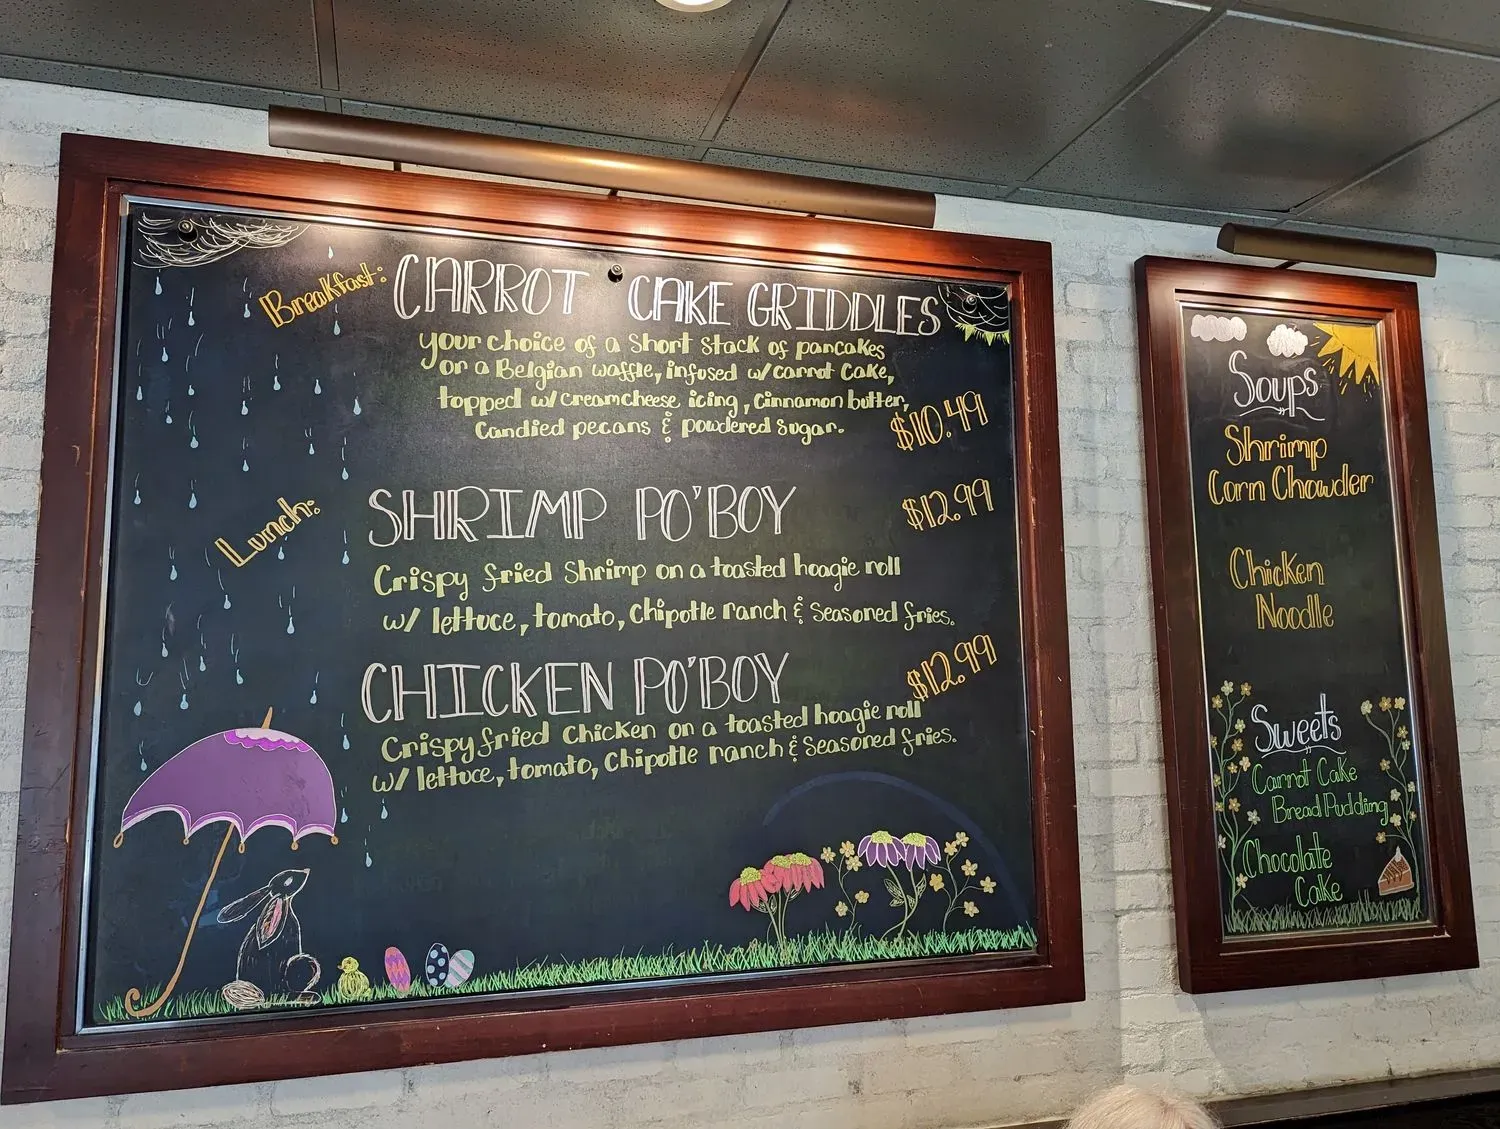 Breakfast: CARROT CAKE GRIDDLES
your choice of a short stack of pancakes
or a Belgian waffle, infused w/ carrot cake,
topped w/ creamcheese icing, cinnamon butter,
candied pecans & powdered sugar.
$10.49
Lunch: SHRIMP PO'BOY $12.99
Crispy fried shrimp on a toasted hoagie roll
w/ lettuce, tomato, chipotle ranch & seasoned fries.
CHICKEN PO'BOY $12.99
Crispy fried chicken on a toasted hoagie roll
w/ lettuce, tomato, chipotle ranch & seasoned fries.
Soups
Shrimp
Corn Chowder
Chicken
Noodle
Sweets
Carrot Cake
Bread Pudding
Chocolate
Cake